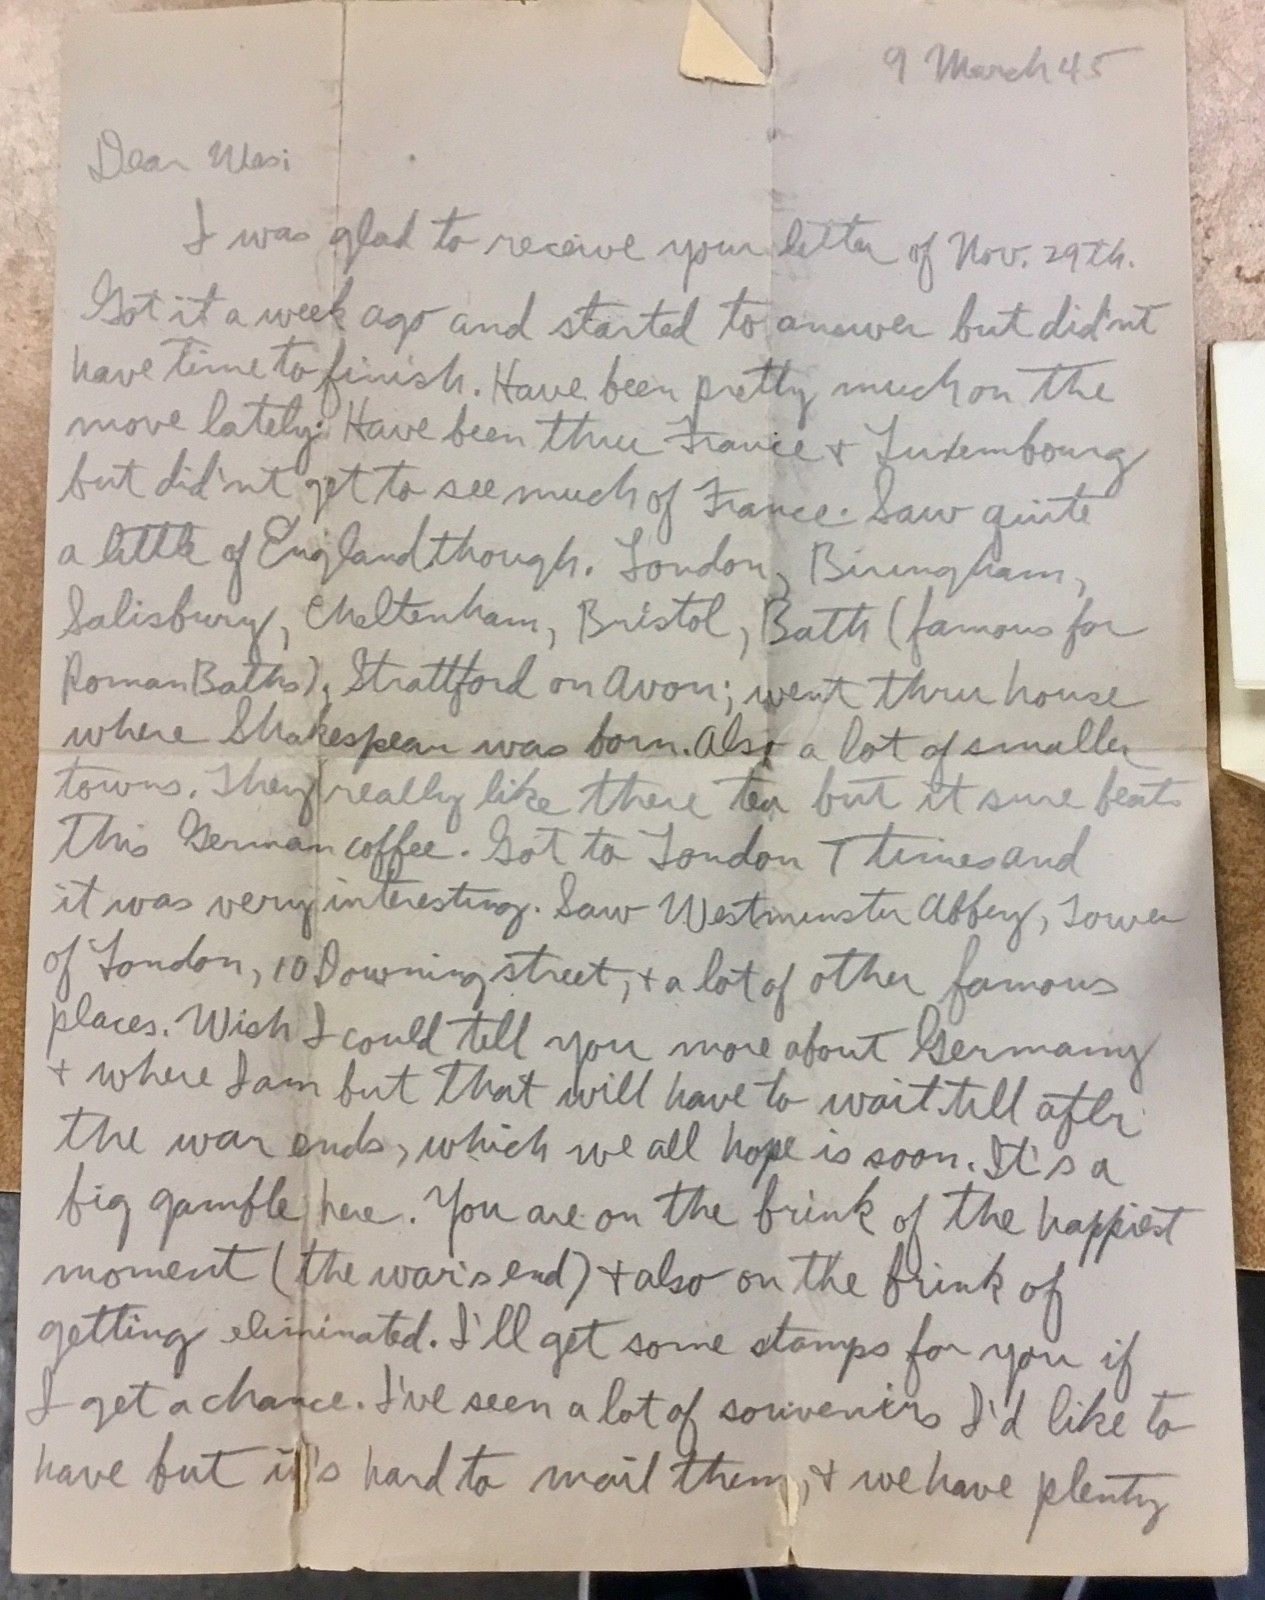 9 March 45
Dear Wes:
I was glad to receive your letter of Nov. 29th.
Got it a week ago and started to answer but did'nt
have time to finish. Have been pretty much on the
move lately. Have been thru France + Luxembourg
but did'nt get to see much of France. Saw quite
a little of England though. London, Biringham,
Salisbury, Cheltenham, Bristol, Bath (famous for
Roman Baths), Strattford on Avon; went thru house
where Shakespear was born. Also a lot of smaller
towns. They really like there tea but it sure beats
this German coffee. Got to London 7 times and
it was very interesting. Saw Westminster Abbey, Tower
of London, 10 Downing street, + a lot of other famous
places. Wish I could tell you more about Germany
+ where I am but that will have to wait till after
the war ends, which we all hope is soon. It's a
big gamble here. You are on the brink of the happiest
moment (the war's end) + also on the brink of
getting eliminated. I'll get some stamps for you if
I get a chance. I've seen a lot of souvenirs I'd like to
have but it's hard to mail them, + we have plenty